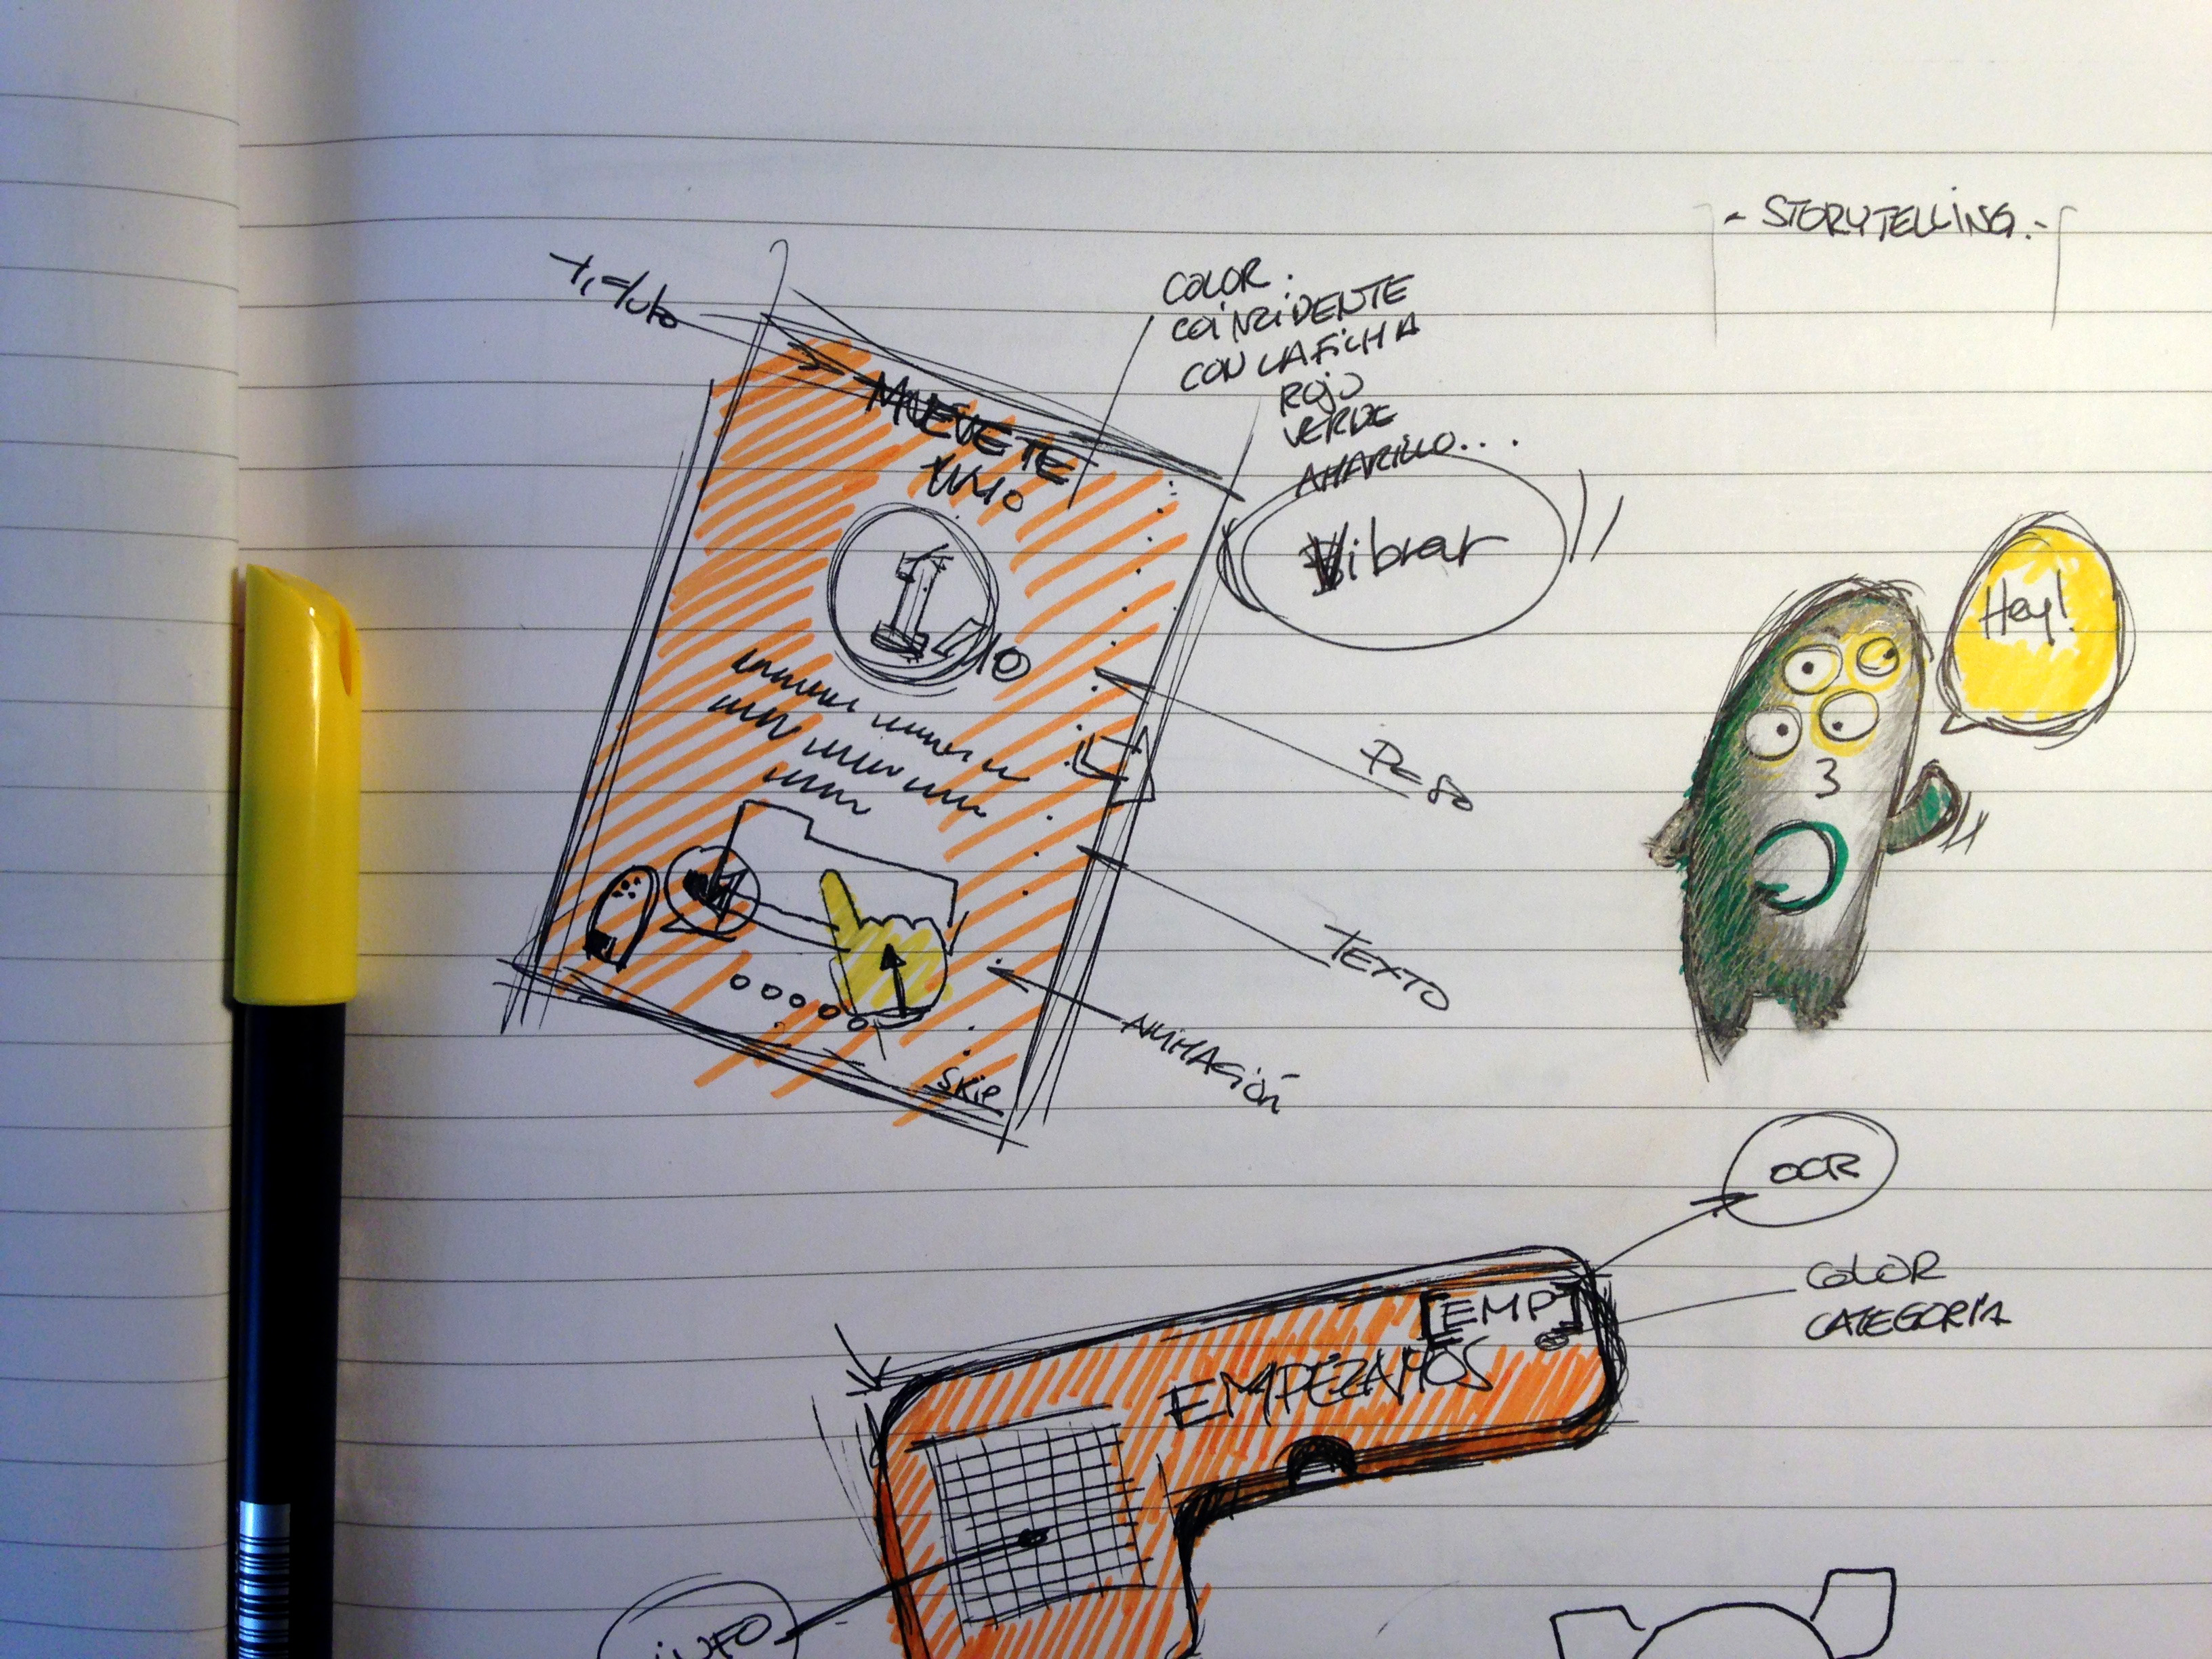 - STORYTELLING.-
Titulo
COLOR.
COINZIDENTE
CON LA FICHA
ROJO
VERDE
AMARILLO...
MUEVETE
Vibrar
Hey!
1/10
PESO
TEXTO
ANIMACIÓN
SKIP
OCR
COLOR
CATEGORÍA
[EMP]
EMPEZAMOS
INFO